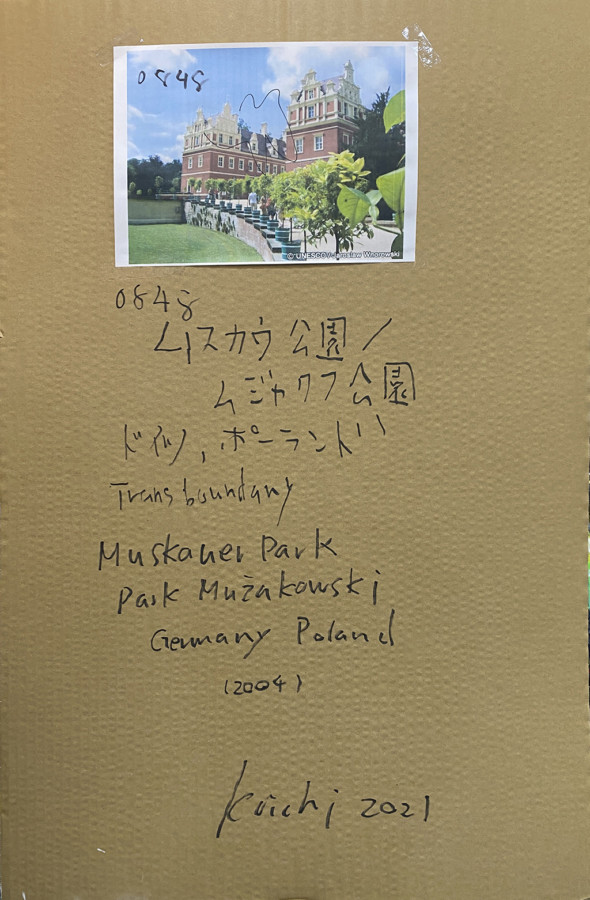 0848
© UNESCO / Jaroslaw Wnorowski
0848
ムスカウ公園 /
ムジャクフ公園
ドイツ, ポーランド
Transboundary
Muskauer Park
Park Mużakowski
Germany Poland
(2004)
Koichi 2021